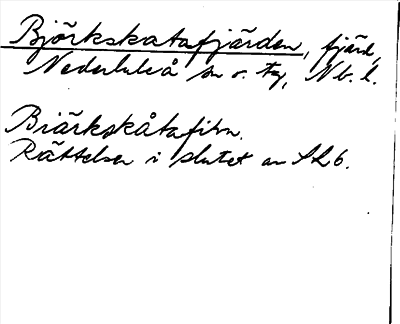 Björkskatafjärden, fjärd,
Nederluleå sn o. tg, Nb. l.
Biärkskåtafiärn.
Rättelser i slutet av SL6.